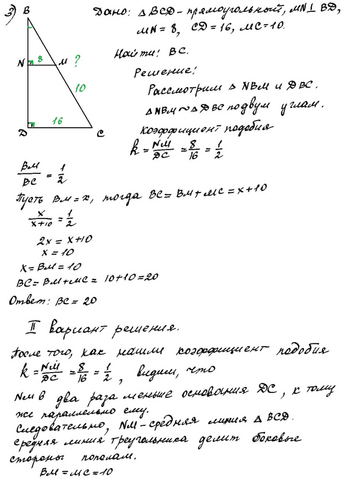 3)
B
Дано: △BCD - прямоугольный, MN⊥BD,
MN = 8, CD = 16, MC = 10.
N 8 M ?
Найти: BC.
10
Решение:
Рассмотрим △NBM и DBC.
16
△NBM ~ △DBC по двум углам.
D C
Коэффициент подобия
k = NM/DC = 8/16 = 1/2
BM/BC = 1/2
Пусть BM = x, тогда BC = BM + MC = x + 10
x/(x+10) = 1/2
2x = x + 10
x = 10
x = BM = 10
BC = BM + MC = 10 + 10 = 20
Ответ: BC = 20
II вариант решения.
После того, как нашли коэффициент подобия
k = NM/DC = 8/16 = 1/2, видим, что
NM в два раза меньше основания DC, к тому
же параллельно ему.
Следовательно, NM - средняя линия △BCD.
Средняя линия треугольника делит боковые
стороны пополам.
BM = MC = 10